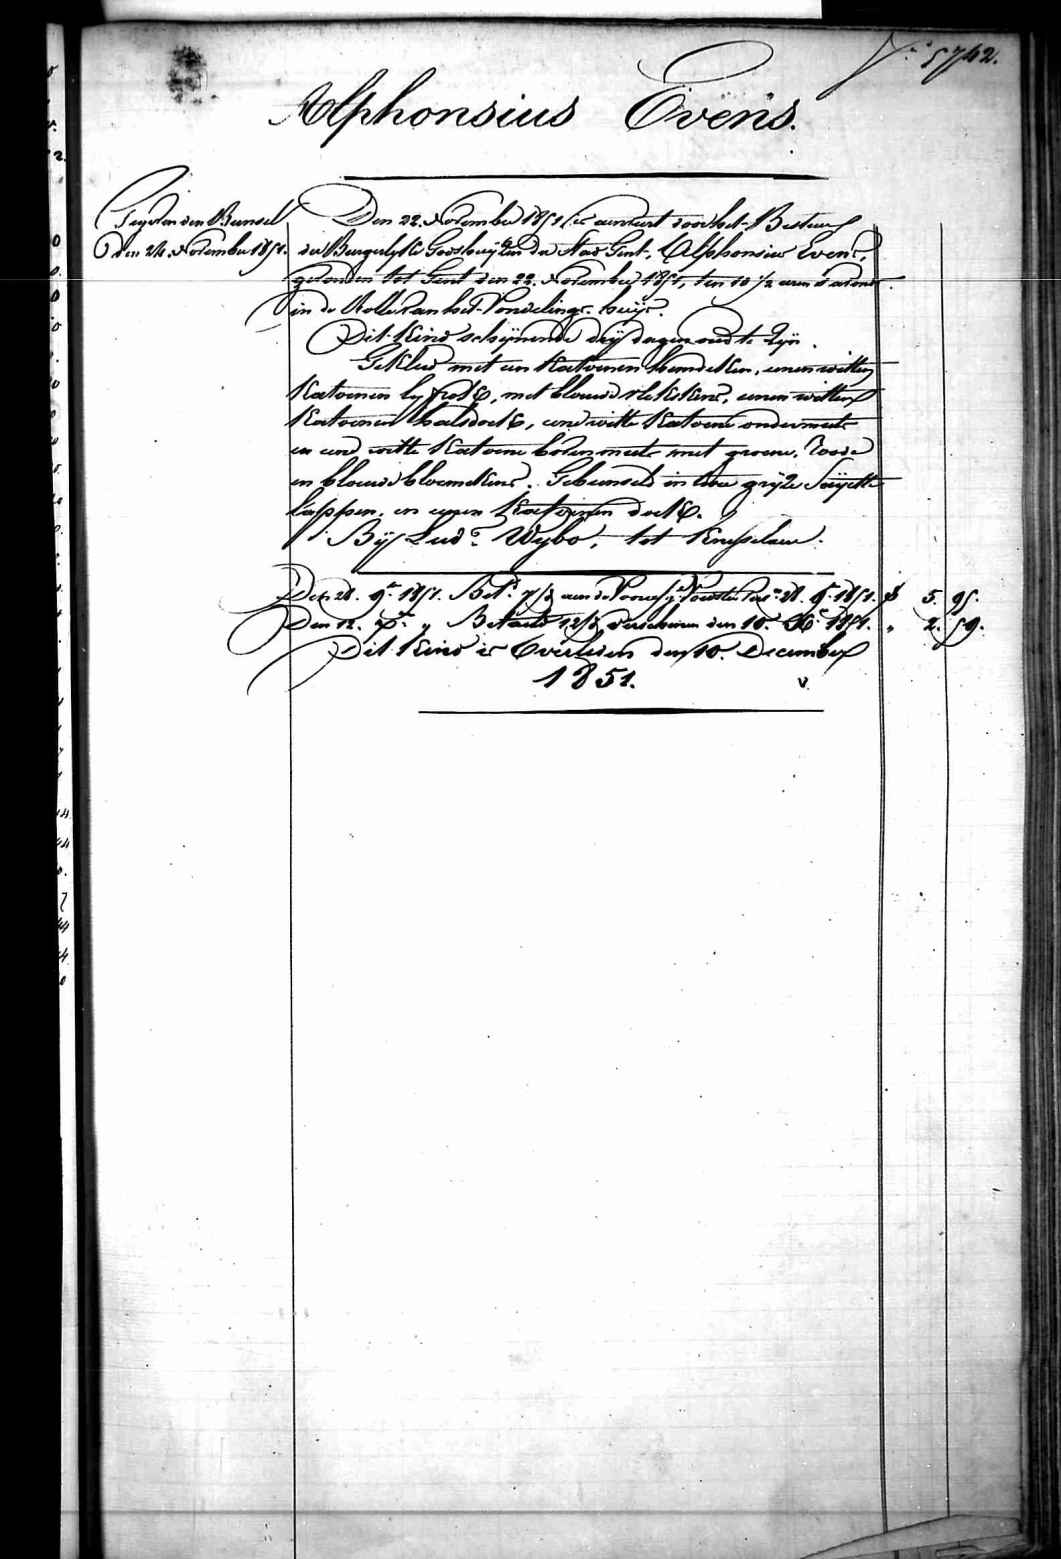 N.º 5742.
Alphonsius Evens.
Gegeven den Bunsel
den 24. November 1851.
Den 22. November 1851 is aenveert door het Bestuer
der Burgerlyke Godshuyzen der Stad Gent, Alphonsius Evens,
gevonden tot Gent den 22. November 1851, ten 10 1/2 uren s'avonds
in de Rolle van het Vondelings-huys.
Dit Kind schynende dry dagen oud te zyn.
Gekleed met een Katoenen hemdeken, eenen witten
Katoenen lyfrok, met blauwe vlekskens, eenen witten
Katoenen halsdoek, eene witte Katoene ondermuts
en eene witte Katoene bovenmuts met groene, roode
en blauwe bloemekens. Gebunseld in twee gryze Sayette
lappen, en eenen Katoenen doek.
By Lud.ª Wybo, tot Knesselaere.
Den 28. 9.br 1851. Bet.d 7/8 aen de 28. 9.br 1851. f 5. 95.
Den 12. X.br „ Betaeld 12/8 verscheenen den 10. X.br 1851. „ 2. 59.
Dit Kind is Overleden den 10. December
1851.